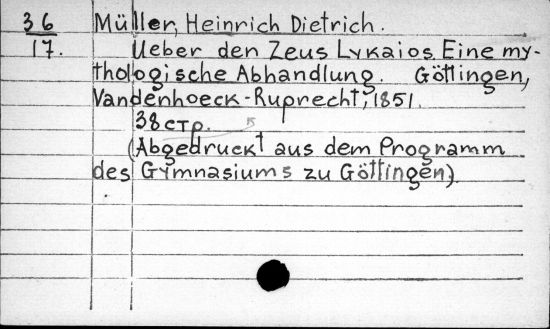 36 Müller, Heinrich Dietrich.
17. Ueber den Zeus Lykaios. Eine my-
thologische Abhandlung. Göttingen,
Vandenhoeck-Ruprecht, 1851.
38 стр.
(Abgedruckt aus dem Programm
des Gymnasiums zu Göttingen).